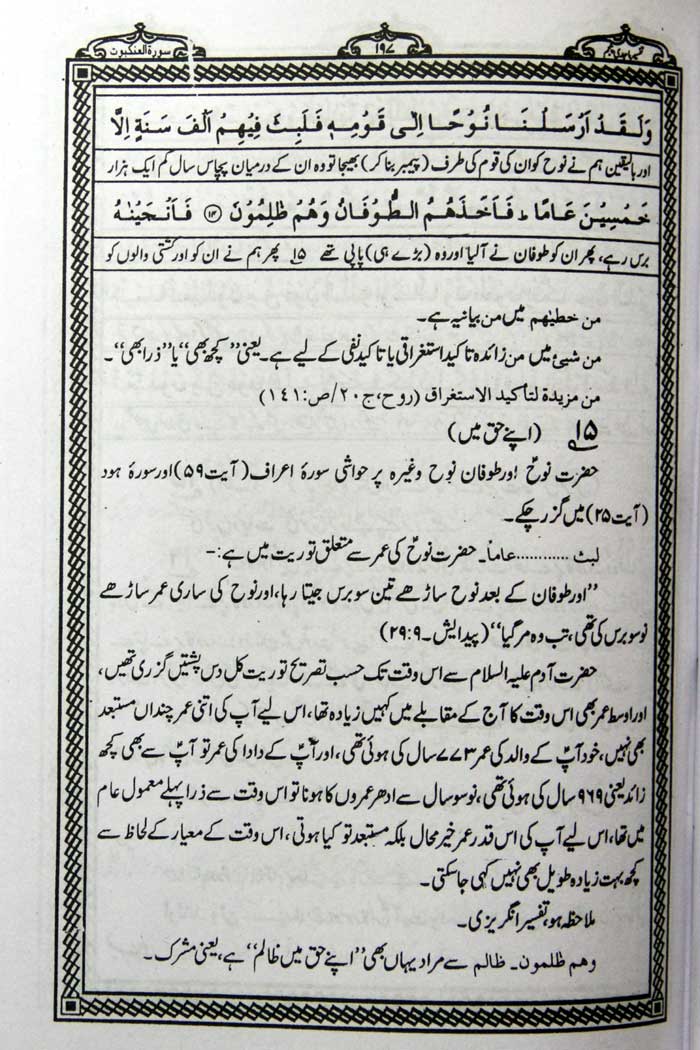 سورۃ العنکبوت
۱۹۷
تفسیر ماجدی پنجم
وَلَقَدْ اَرْسَلْنَا نُوْحًا اِلٰى قَوْمِهٖ فَلَبِثَ فِيْهِمْ اَلْفَ سَنَةٍ اِلَّا
اور بالیقین ہم نے نوح کو ان کی قوم کی طرف (پیمبر بنا کر) بھیجا تو وہ ان کے درمیان پچاس سال کم ایک ہزار
خَمْسِيْنَ عَامًا ؕ فَاَخَذَهُمُ الطُّوْفَانُ وَهُمْ ظٰلِمُوْنَ ﴿۱۴﴾ فَاَنْجَيْنٰهُ
برس رہے، پھر ان کو طوفان نے آلیا اور وہ (بڑے ہی) پاپی تھے ۱۵ پھر ہم نے ان کو اور کشتی والوں کو
من خطیٰهم میں من بیانیہ ہے۔
من شیئ میں من زائدہ تاکید استغراقی یا تاکید نفی کے لیے ہے۔ یعنی ”کچھ بھی“ یا ”ذرا بھی“۔
من مزیدة لتأکید الاستغراق (روح، ج۲۰/ص:۱۴۱)
۱۵ (اپنے حق میں)
حضرت نوحؑ اور طوفان نوح وغیرہ پر حواشی سورۂ اعراف (آیت ۵۹) اور سورۂ ہود
(آیت ۲۵) میں گزر چکے۔
لبث ............ عاماً۔ حضرت نوحؑ کی عمر سے متعلق توریت میں ہے:-
”اور طوفان کے بعد نوح ساڑھے تین سو برس جیتا رہا، اور نوح کی ساری عمر ساڑھے
نو سو برس کی تھی، تب وہ مر گیا“ (پیدایش۔۲۹:۹)
حضرت آدم علیہ السلام سے اس وقت تک حسب تصریح توریت کل دس پشتیں گزری تھیں،
اور اوسط عمر بھی اس وقت کا آج کے مقابلے میں کہیں زیادہ تھا، اس لیے آپ کی اتنی عمر چنداں مستبعد
بھی نہیں، خود آپؑ کے والد کی عمر ۷۷۳ سال کی ہوئی تھی، اور آپؑ کے دادا کی عمر تو آپؑ سے بھی کچھ
زائد یعنی ۹۶۹ سال کی ہوئی تھی، نو سو سال سے ادھر عمروں کا ہونا تو اس وقت سے ذرا پہلے معمول عام
میں تھا، اس لیے آپ کی اس قدر عمر خیر محال بلکہ مستبعد تو کیا ہوتی، اس وقت کے معیار کے لحاظ سے
کچھ بہت زیادہ طویل بھی نہیں کہی جا سکتی۔
ملاحظہ ہو، تفسیر انگریزی۔
وهم ظٰلمون۔ ظالم سے مراد یہاں بھی ”اپنے حق میں ظالم“ ہے، یعنی مشرک۔